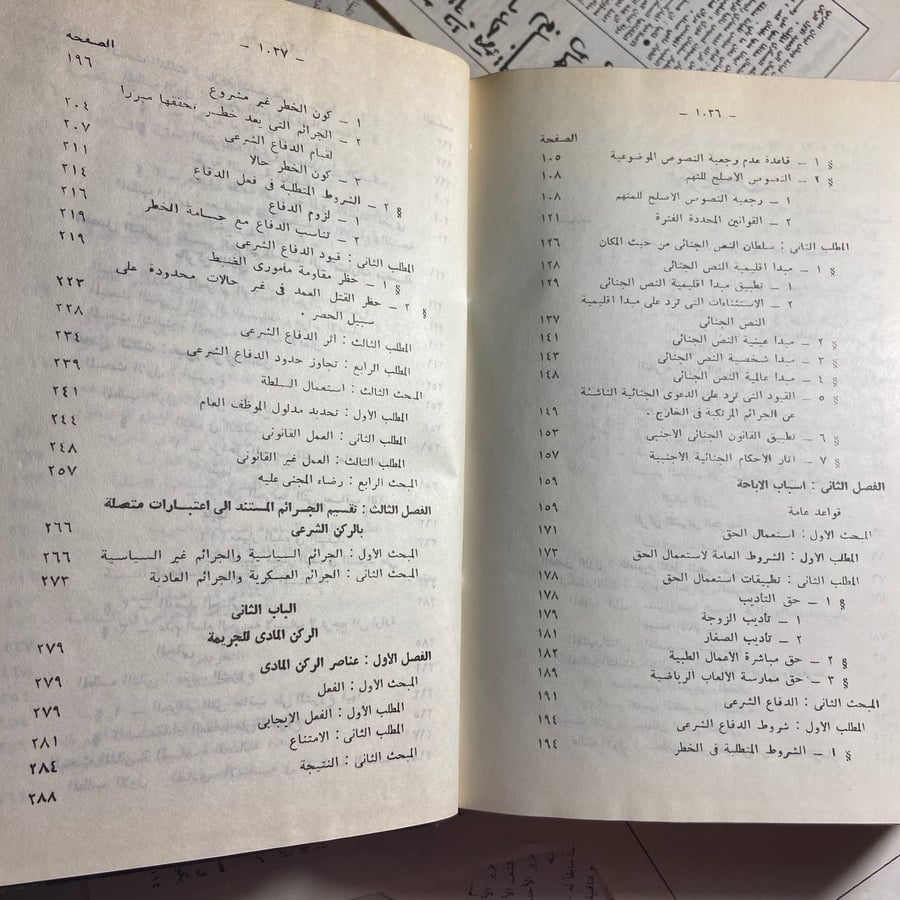 – ١٠٣٦ –
الصفحة
§ ١ – قاعدة عدم رجعية النصوص الموضوعية ١٠٥
§ ٢ – النصوص الاصلح للمتهم ١٠٨
١ – رجعية النصوص الاصلح للمتهم ١٠٨
٢ – القوانين المحددة الفترة ١٢١
المطلب الثانى : سلطان النص الجنائى من حيث المكان ١٢٦
§ ١ – مبدا اقليمية النص الجنائى ١٢٨
١ – تطبيق مبدا اقليمية النص الجنائى ١٢٩
٢ – الاستثناءات التى ترد على مبدا اقليمية
النص الجنائى ١٣٧
§ ٢ – مبدا عينية النص الجنائى ١٤١
§ ٣ – مبدا شخصية النص الجنائى ١٤٣
§ ٤ – مبدا عالمية النص الجنائى ١٤٨
§ ٥ – القيود التى ترد على الدعوى الجنائية الناشئة
عن الجرائم المرتكبة فى الخارج . ١٤٩
§ ٦ – تطبيق القانون الجنائى الاجنبى ١٥٣
§ ٧ – اثار الأحكام الجنائية الاجنبية ١٥٧
الفصل الثانى : اسباب الاباحة ١٥٩
قواعد عامة ١٥٩
المبحث الاول : استعمال الحق ١٧١
المطلب الأول : الشروط العامة لاستعمال الحق ١٧٣
المطلب الثانى : تطبيقات استعمال الحق ١٧٨
§ ١ – حق التأديب ١٧٨
١ – تأديب الزوجة ١٧٩
٢ – تأديب الصغار ١٨١
§ ٢ – حق مباشرة الأعمال الطبية ١٨٢
§ ٣ – حق ممارسة الألعاب الرياضية ١٨٩
المبحث الثانى : الدفاع الشرعى ١٩١
المطلب الأول : شروط الدفاع الشرعى ١٩٤
§ ١ – الشروط المتطلبة فى الخطر ١٩٤
– ١٠٣٧ –
الصفحة
١٩٦
١ – كون الخطر غير مشروع
٢ – الجرائم التى يعد خطر تحققها مبررا ٢٠٤
لقيام الدفاع الشرعى ٢٠٧
٣ – كون الخطر حالا ٢١١
§ ٢ – الشروط المتطلبة فى فعل الدفاع ٢١٤
١ – لزوم الدفاع ٢١٦
٢ – تناسب الدفاع مع جسامة الخطر ٢١٩
المطلب الثانى : قيود الدفاع الشرعى ٢١٩
§ ١ – حظر مقاومة مأمورى الضبط
§ ٢ – حظر القتل العمد فى غير حالات محدودة على ٢٢٣
سبيل الحصر . ٢٢٨
المطلب الثالث : اثر الدفاع الشرعى ٢٣٤
المطلب الرابع : تجاوز حدود الدفاع الشرعى ٢٣٩
المبحث الثالث : استعمال السلطة ٢٤١
المطلب الأول : تحديد مدلول الموظف العام ٢٤٤
المطلب الثانى : العمل القانونى ٢٤٨
المطلب الثالث : العمل غير القانونى ٢٥٧
المبحث الرابع : رضاء المجنى عليه
الفصل الثالث : تقسيم الجرائم المستند الى اعتبارات متصلة
بالركن الشرعى ٢٦٦
المبحث الاول : الجرائم السياسية والجرائم غير السياسية ٢٦٦
المبحث الثانى : الجرائم العسكرية والجرائم العادية ٢٧٣
الباب الثانى
الركن المادى للجريمة ٢٧٩
الفصل الأول : عناصر الركن المادى ٢٧٩
المبحث الأول : الفعل ٢٧٩
المطلب الأول : الفعل الإيجابى ٢٨١
المطلب الثانى : الامتناع ٢٨٤
المبحث الثانى : النتيجة ٢٨٨